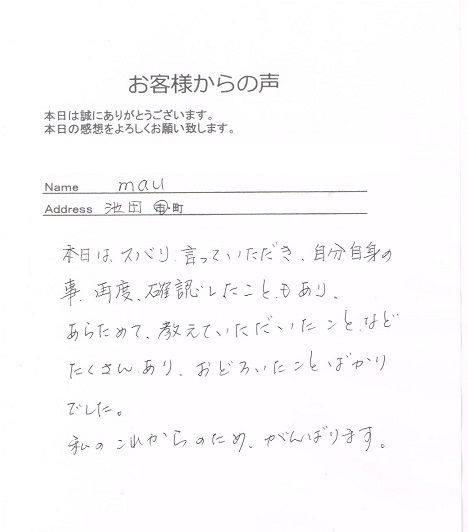 お客様からの声
本日は誠にありがとうございます。
本日の感想をよろしくお願い致します。
Name mau
Address 池田 市・町
本日は、ズバリ、言っていただき、自分自身の
事、再度、確認したこともあり、
あらためて、教えていただいたこと、など
たくさんあり、おどろいたことばかり
でした。
私のこれからのため、がんばります。